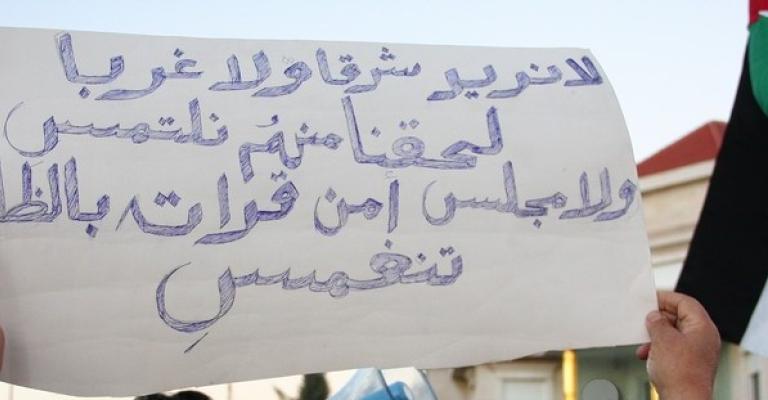 لا نريد شرقا ولا غربا
لحقنا منهُم نلتمسِ
ولا مجلس أمن قراته بالظا
تنغمسِ